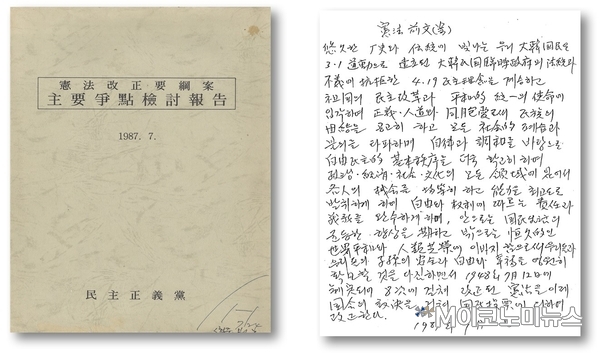 憲法改正要綱案
主要爭點檢討報告
1987. 7.
民主正義黨
憲法 前文(案)
悠久한 歷史와 伝統에 빛나는 우리 大韓国民은
3·1 運動으로 建立된 大韓民国臨時政府의 法統과
不義에 抗拒한 4.19 民主理念을 계승하고
祖国의 民主改革과 平和的 統一의 使命에
입각하여 正義·人道와 同胞愛로써 民族의
団結을 공고히 하고 모든 社会的 폐습과
불의를 타파하며 自律과 調和를 바탕으로
自由民主的 基本秩序를 더욱 확고히 하여
政治·経済·社会·文化의 모든 領域에 있어서
各人의 機会를 均等히 하고 能力을 最高度로
발휘하게 하며 自由와 権利에 따르는 責任과
義務를 완수하게 하여, 안으로는 国民生活의
균등한 향상을 期하고 밖으로는 恒久的인
世界平和와 人類共榮에 이바지함으로써 우리들과
우리들의 子孫의 安全과 自由와 幸福을 영원히
확보할 것을 다짐하면서 1948年 7月 12日에
制定되며 8次에 걸쳐 改正된 憲法을 이제
国会의 議決을 거쳐 国民投票에 의하여
改正한다.
M이코노미뉴스